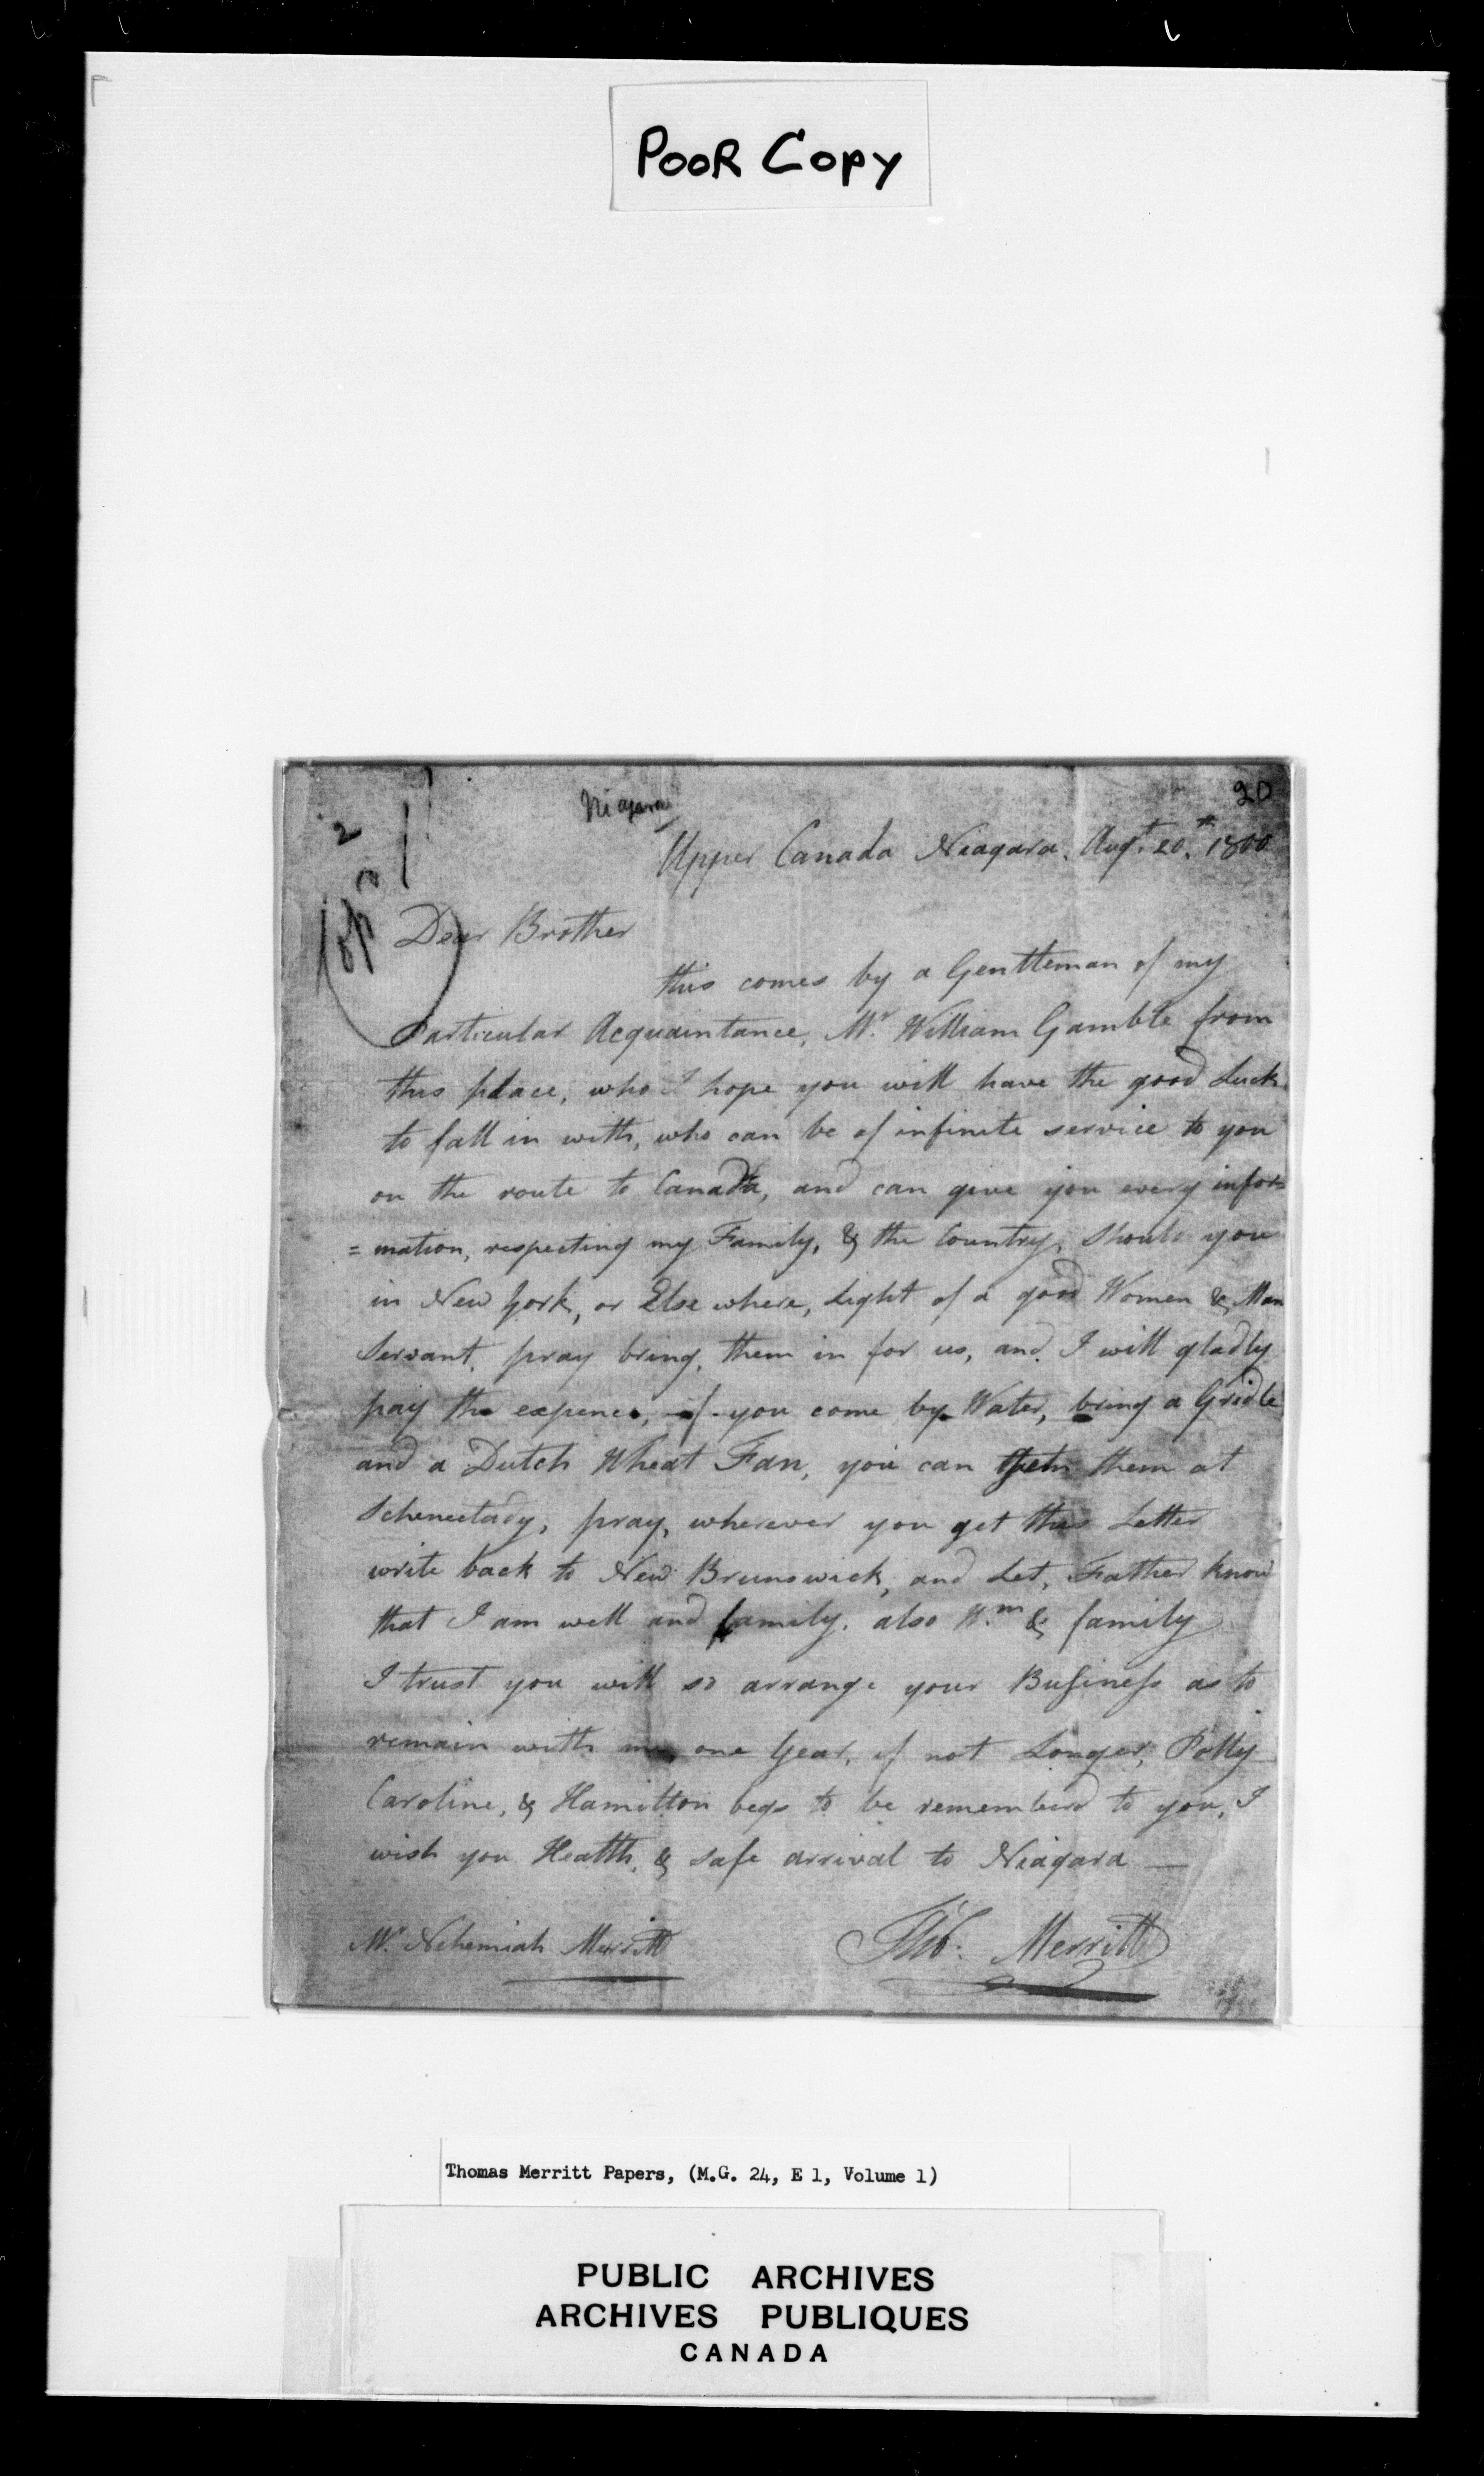 POOR COPY
Niagara
20
2
Upper Canada Niagara. Augt. 20th. 1800
Dear Brother
this comes by a Gentleman of my
Particular Acquaintance, Mr. William Gamble from
this place, who I hope you will have the good Luck
to fall in with, who can be of infinite service to you
on the route to Canada, and can give you every infor=
=mation, respecting my Family, & the Country, Should you
in New York, or Else where, Light of a good Women & Man
Servant, pray bring, them in for us, and I will gladly
pay the expence, if you come by Water, bring a Gridle
and a Dutch Wheat Fan, you can them at
Schenectady, pray, wherever you get this Letter
write back to New Brunswick, and Let, Father know
that I am well and family. also Wm. & family
I trust you will so arrange your Business as to
remain with me one Year, if not Longer, Polly
Caroline, & Hamilton begs to be rememberd to you, I
wish you Health, & safe arrival to Niagara —
Mr. Nehemiah Merritt
Tho. Merritt
Thomas Merritt Papers, (M.G. 24, E 1, Volume 1)
PUBLIC ARCHIVES
ARCHIVES PUBLIQUES
CANADA